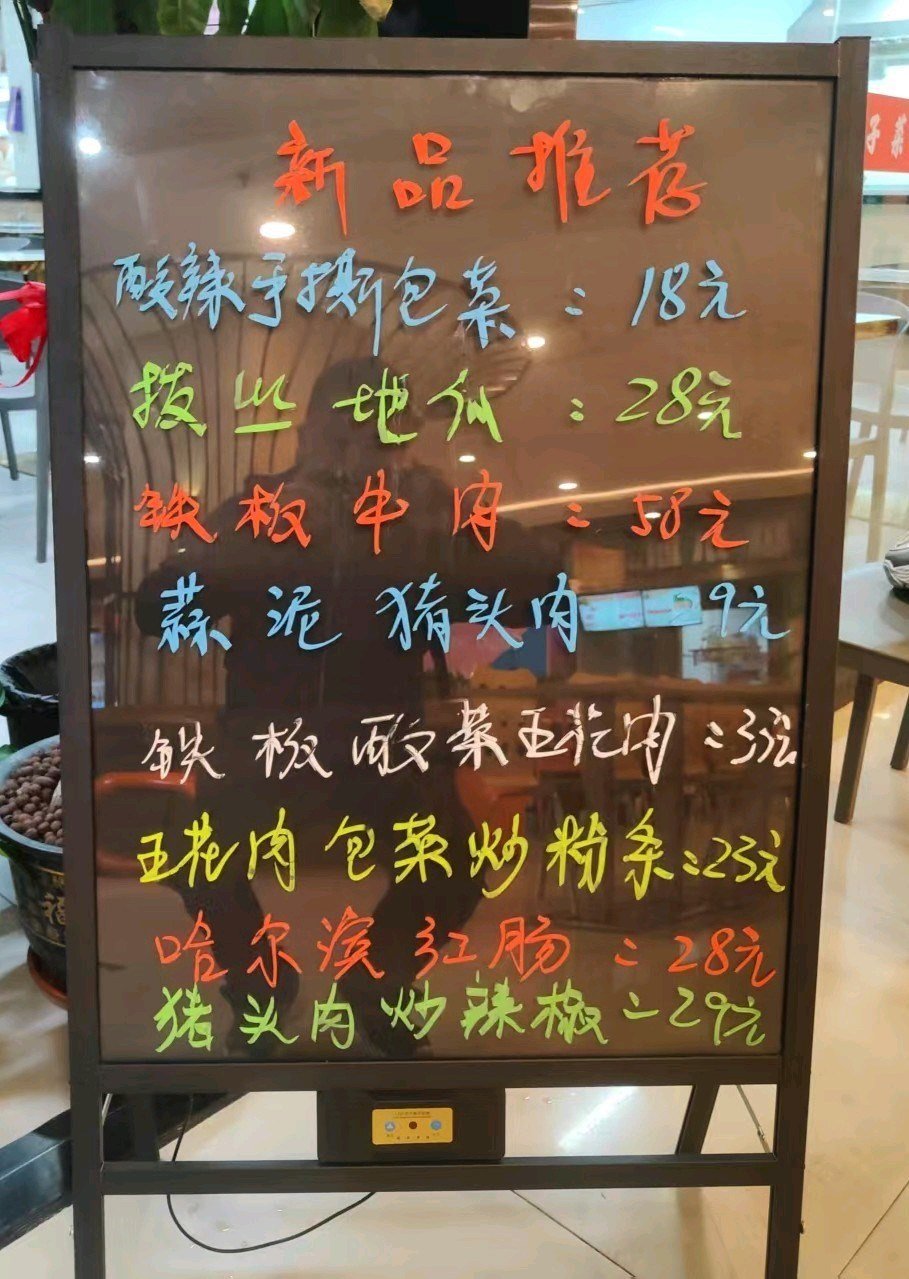 新品推荐
酸辣手撕包菜：18元
拨丝地瓜：28元
铁板牛肉：58元
蒜泥猪头肉 29元
铁板酸菜五花肉：33元
五花肉包菜炒粉条：23元
哈尔滨红肠：28元
猪头肉炒辣椒：29元
菜子
福